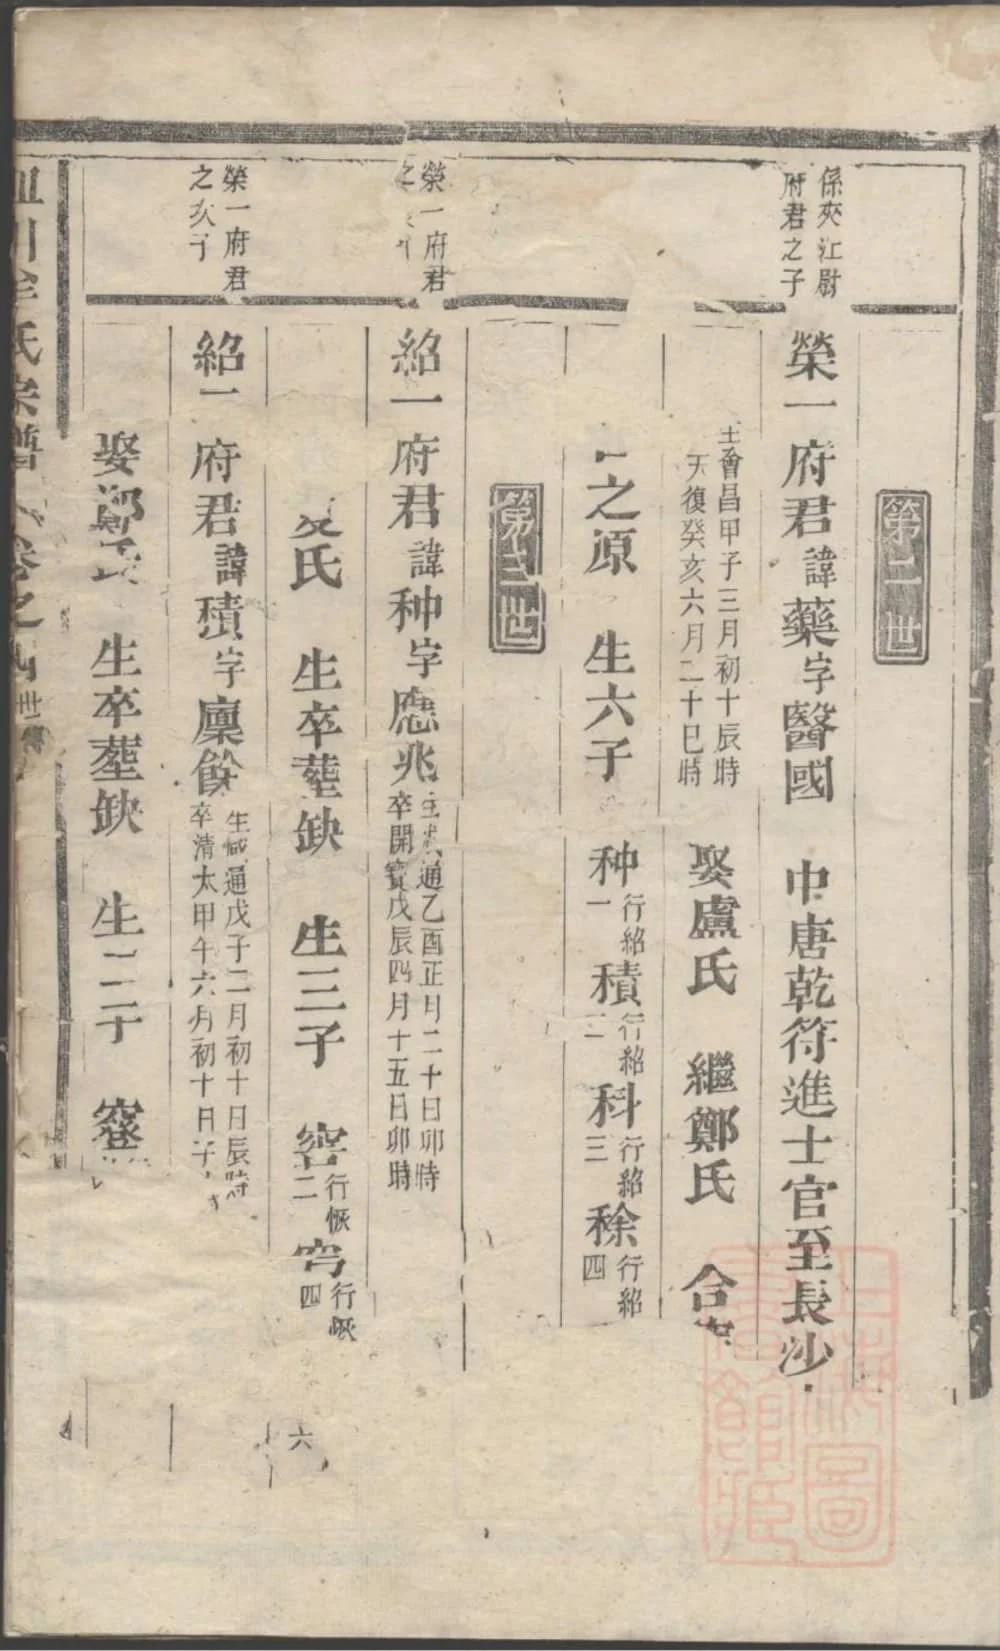 第二世
係夾江尉
府君之子
榮一府君諱藥字醫國 中唐乾符進士官至長沙
生會昌甲子三月初十辰時
天復癸亥六月二十巳時
娶盧氏 繼鄭氏 合
之原 生六子
种行紹一 積行紹二 科行紹三 稌行紹四
第三世
榮一府君
之
紹一府君諱种字應兆
生咸通乙酉正月二十日卯時
卒開寶戊辰四月十五日卯時
氏 生卒塟缺 生三子 行恢二 行恢四
榮一府君
之次子
紹二府君諱積字廩餘
生咸通戊子二月初十日辰時
卒清太甲午六月初十日子
娶鄭氏 生卒塟缺 生二子
氏宗譜 卷之四 世
六